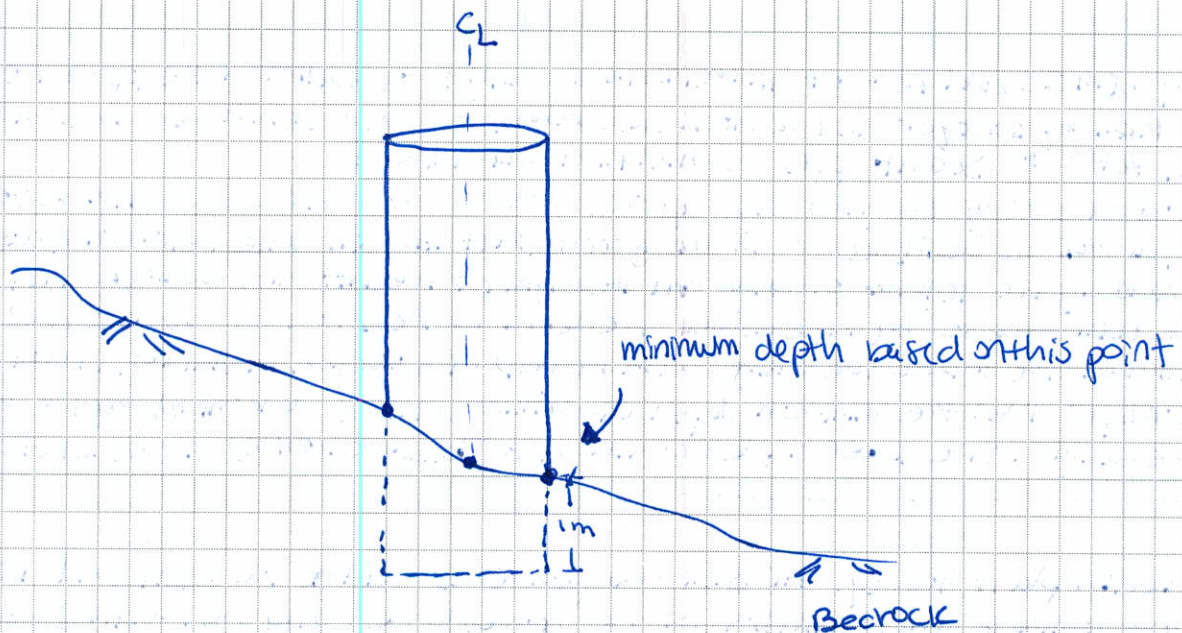 CL
minimum depth based on this point
1m
Becrock